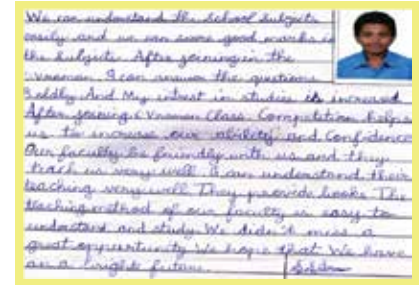 We can understand the School Subjects
easily and we can score good marks in
the subjects. After joining in the
I can answer the questions
boldly. And My intrest in studies is increased
After joining Class. Competition helps
us to increase our ability and Confidence
Our faculty be friendly with us and they
teach us very well. I can understand their
teaching very well. They provide books. The
teaching method of our faculty is easy to
understand and study. We didn't miss a
great oppurtunity. We hope that We have
a bright future.